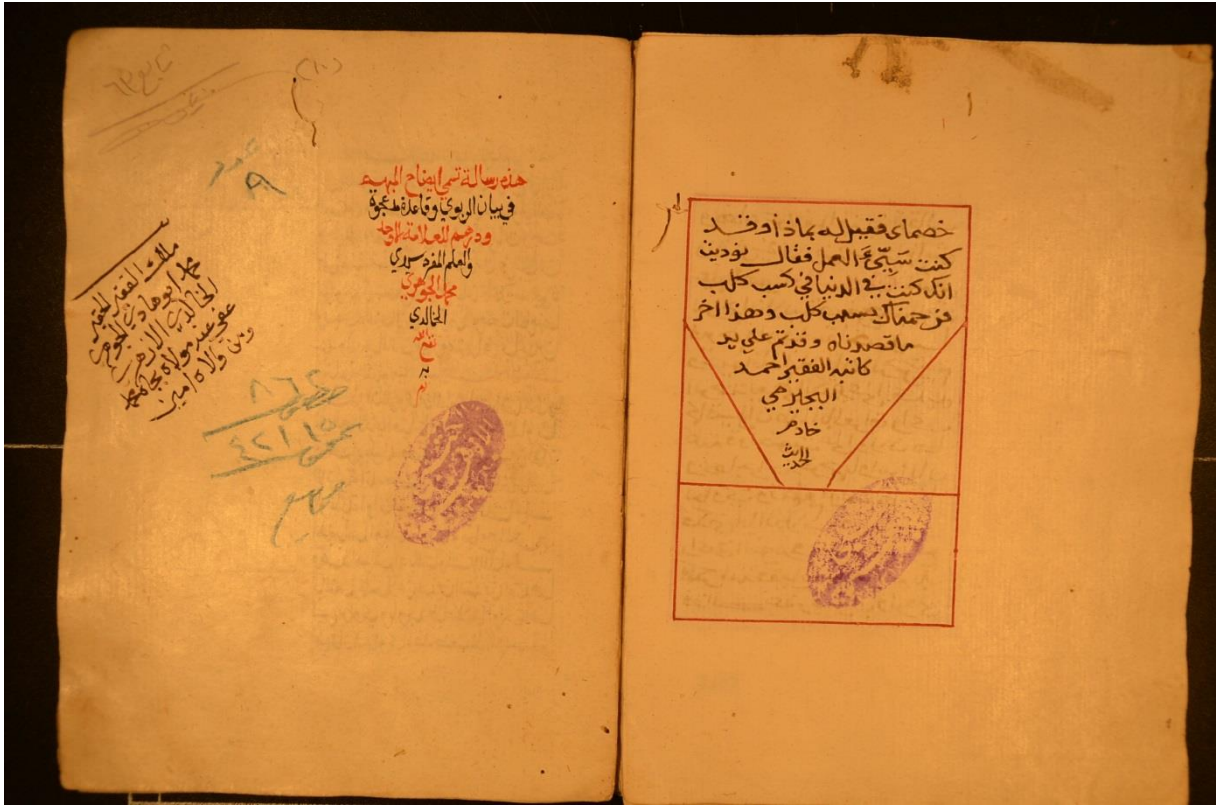 خصماى فقيل له بماذا وقد
كنت سيّئَ العمل فقال نودين
انك كنت في الدنيا في كسب كلب
فرحمناك بسبب كلب وهذا اخر
ما قصدناه وقد تم علي يد
كاتبه الفقير احمد
البجيرمي
خادم
الحديث
هذه رسالة تسمي ايضاح المبهم
في بيان الربوي وقاعدة مد عجوة
ودرهم للعلامة
والعلم المفرد سيدي
محمد الجوهري
الخالدي
نفع الله
به
ملك الفقير الحقير
محمد ابو هادي الجوهري
الخالدي الازهري
عفي عنه مولاه بجاه محمد
ومن والاه امين
(٢٨٠)
٩
٨٦٢
٤٢١١٥